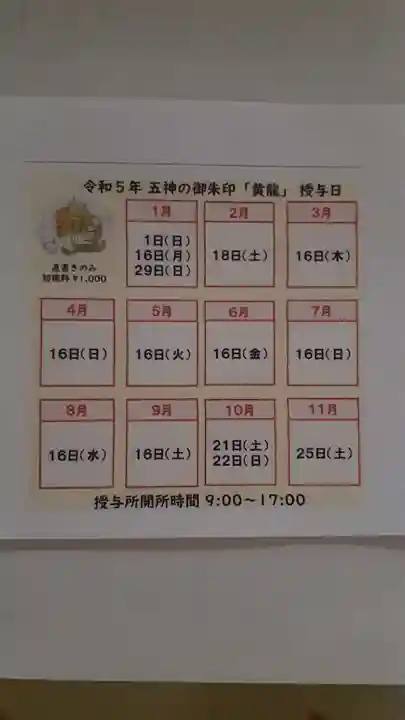 令和5年 五神の御朱印「黄龍」 授与日
直書きのみ
初穂料￥1,000
1月
1日(日)
16日(月)
29日(日)
2月
18日(土)
3月
16日(木)
4月
16日(日)
5月
16日(火)
6月
16日(金)
7月
16日(日)
8月
16日(水)
9月
16日(土)
10月
21日(土)
22日(日)
11月
25日(土)
授与所開所時間 9:00〜17:00